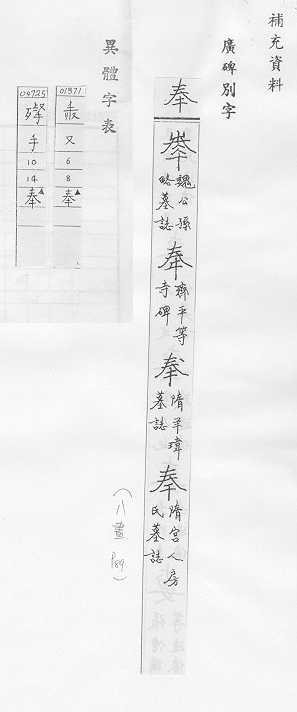 補充資料
廣碑別字
奉
魏公孫略墓誌
奉
齊平等寺碑
奉
隋羊瑋墓誌
奉
隋宮人房氏墓誌
(八畫 P89)
異體字表
01371
又
6
8
奉▲
04725
手
10
14
奉▲